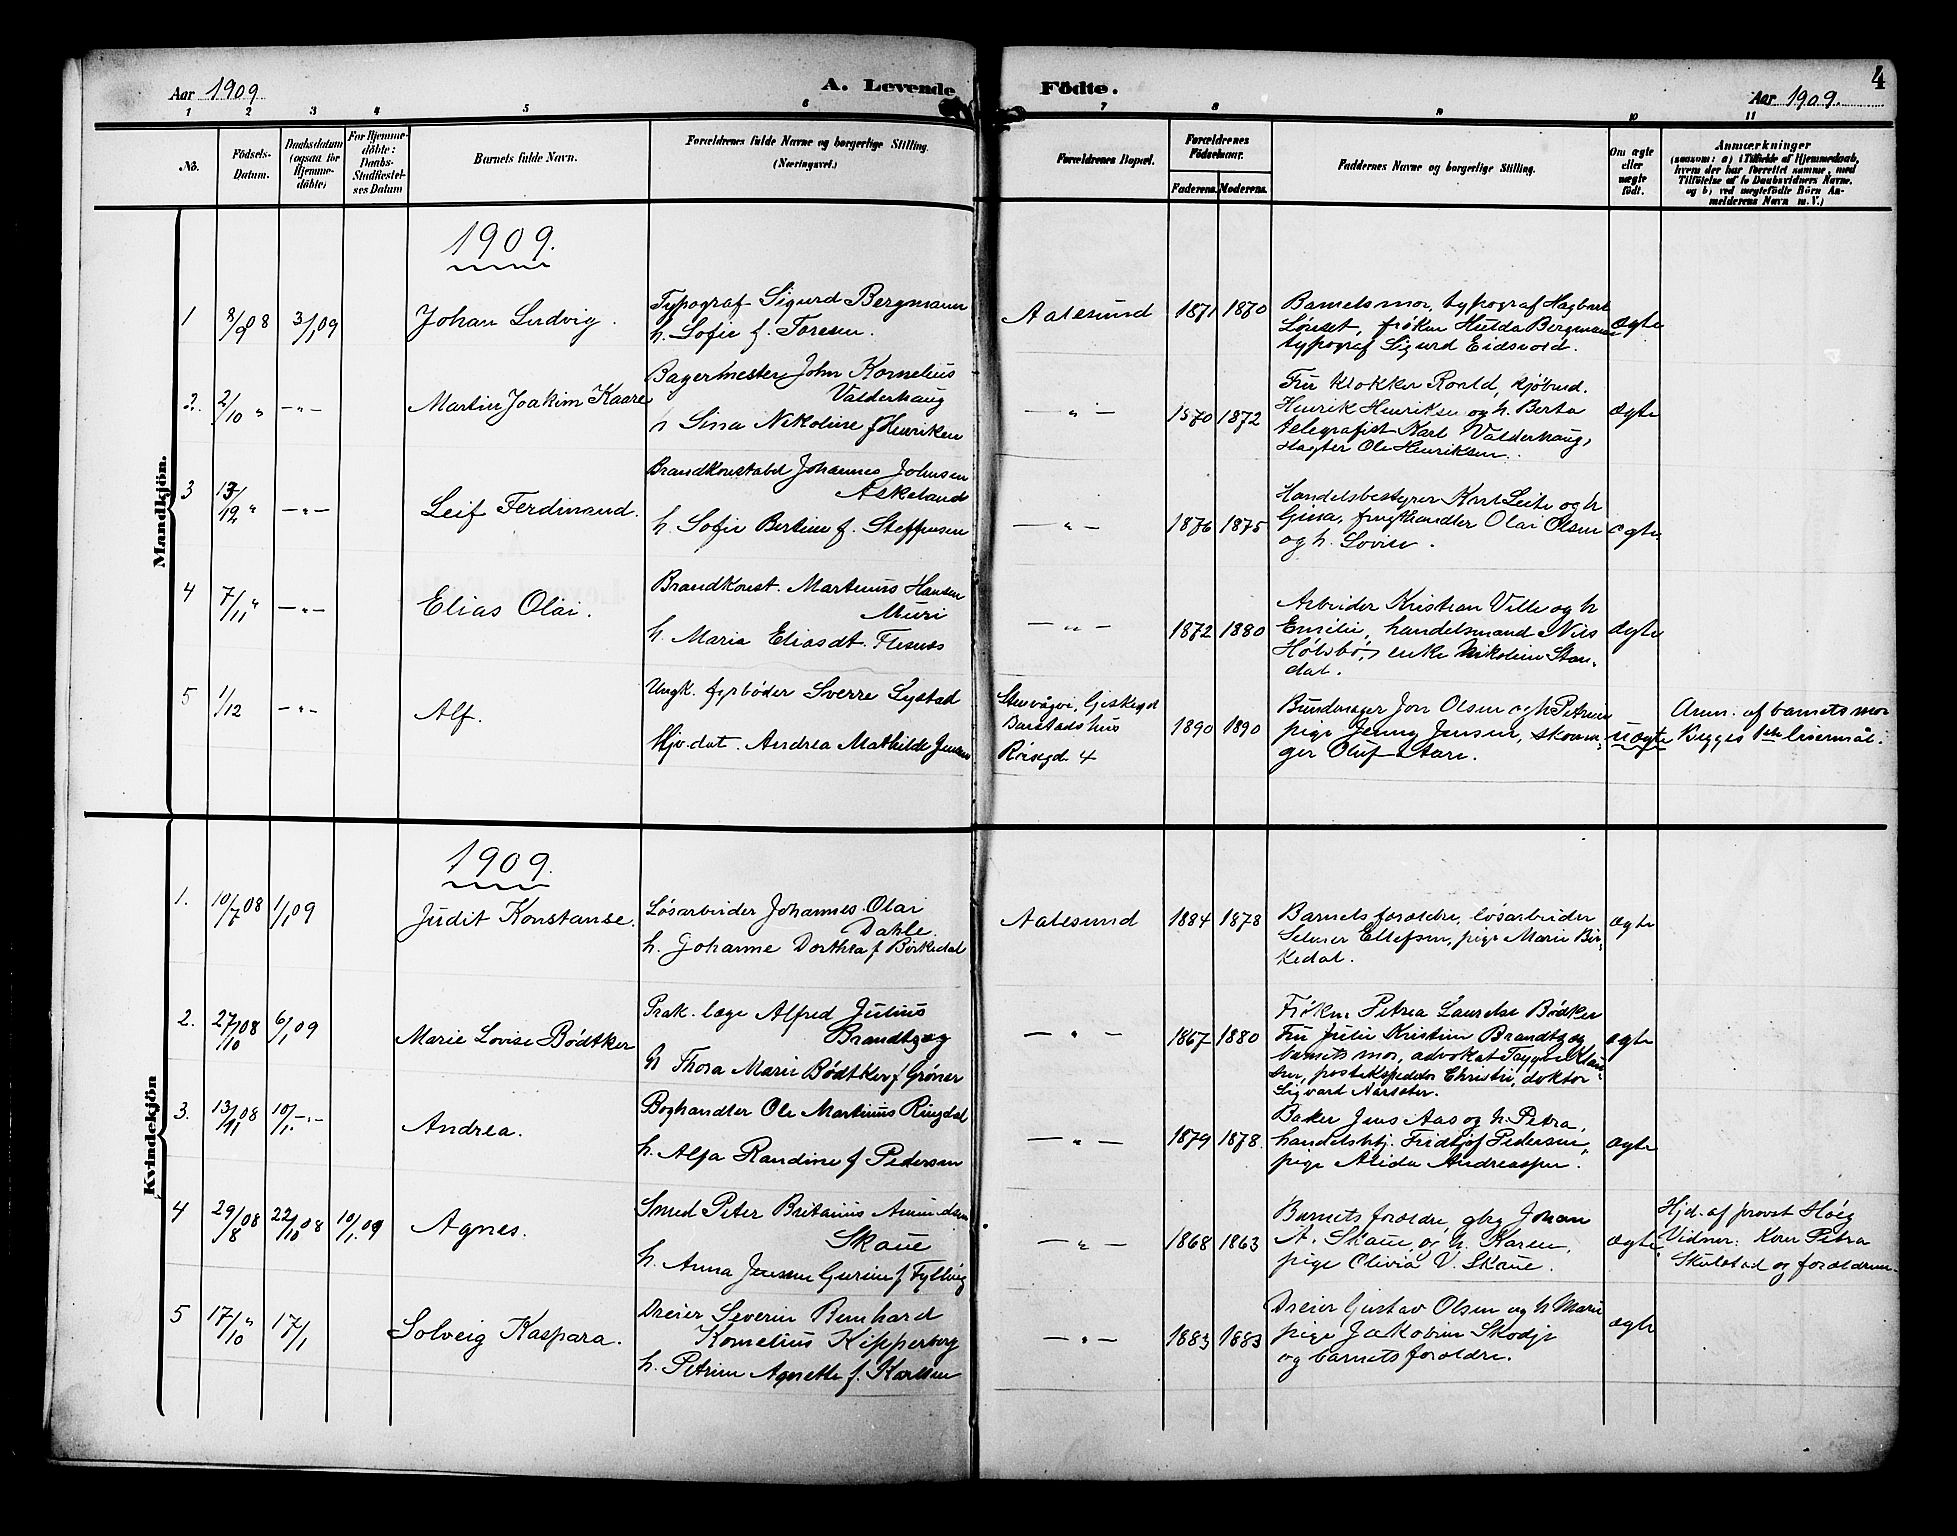 Aar 1909
A. Levende
Födte.
4
Aar 1909.
1 2 3 4 5 6 7 8 9 10 11
No.
Födsels-
Datum.
Daabsdatum
(ogsaa for
Hjemme-
döbte)
For Hjemme-
döbte:
Daabs-
Stadfæstel-
ses Datum
Barnets fulde Navn.
Forældrenes fulde Navne og borgerlige Stilling.
(Næringsvei.)
Forældrenes Bopæl.
Forældrenes
Födselsaar.
Faderens. Moderens.
Faddernes Navne og borgerlige Stilling.
Om ægte
eller
uægte
födt.
Anmærkninger
(saasom: a) i Tilfælde af Hjemmedaab,
hvem der har forrettet samme, med
Tilföielse af to Daabsvidners Navne,
og b) ved uægtefödte Börn An-
melderens Navn m. V.)
Mandkjön.
1909.
1 8/9 08 3/1 09
Johan Ludvig.
Typograf Sigurd Bergmann
h. Sofie f. Toresen.
Aalesund 1871 1870
Barnets mor, typograf Hagbart
Lønset, frøken Hulda Bergmann
typograf Sigurd Eidsvold.
ægte
2. 2/10 " -"-
Martin Joakim Kaare
Bagermester John Kornelius
Valderhaug
h Sina Nikoline f Henriken
-"- 1870 1872
Fru klokker Roald, kjøbmd.
Henrik Henriksen og h. Berta
telegrafist Karl Valderhaug,
Ole Henriksen.
ægte
3 13/12 " -"-
Leif Ferdinand.
Brandkonstabel Johannes Johnsen
Askeland
h. Sofie Bertine f. Steffensen
-"- 1876 1875
Handelsbestyrer Karl Leite og h
Gina, Olai Olsen
og h. Lovise.
ægte
4 7/11 " -"-
Elias Olai.
Brandkonst. Martinus Hansen
Muri
h. Maria Eliasdt. Flesnes
-"- 1872 1880
Arbeider Kristian Ville og h
Emilie, handelsmand Nils
Holsbø, enke Nikoline Stan-
dal.
ægte
5 1/12 -"-
Alf.
Ungk. fyrbøder Sverre Lystad
Hjv. dat. Andrea Mathilde Jensen
Stenvågvei, Giskegd
Barstadshus
Røisegd 4
1890 1890
Bundmager Jon Olsen og h Petrine
pige Jenny Jensen, skoma-
ger Oluf Aare.
uægte
Anm. af barnets mor
Begges 1ste leiermål.
Kvindekjön
1909.
1. 10/7 08 1/1 09
Judit Konstanse.
Løsarbeider Johannes Olai
Dahle.
h. Johanne Dorthea f Børkedal
Aalesund 1884 1878
Barnets forældre, løsarbeider
Selmer Ellefsen, pige Marie Bør-
kedal.
ægte
2. 27/10 08 6/1 09
Marie Lovise Bødtker
Prak. læge Alfred Julius
Brandtzæg
h Thora Marie Bødtker f Grøner
-"- 1867 1880
Frøken Petrea Laurelse Bødker
Fru Julie Kristine Brandtzæg
barnets mor, advokat Tygge Klau-
sen, postekspeditør Christie, doktor
Sigvard Aarsæter.
ægte
3. 13/11 08 10/1 -"-
Andrea.
Boghandler Ole Martinus Ringdal
h. Alfa Randine f Pedersen
-"- 1879 1878.
Baker Jens Aas og h. Petra,
handelsbtj. Fridtjof Pedersen,
pige Alida Andreassen.
ægte
4 29/8 08 22/10 08 10/1 09
Agnes.
Smed Peter Britanius Amundsen
Skaue
h. Anna Jensine Gurine f Fylling
-"- 1868 1863
Barnets forældre, gbrg Johan
A. Skaue, og h. Karen,
pige Olivia V. Skaue.
ægte
Hjd. af provst Høeg
Vidner: Kone Petra
Skulstad og forældrene
5 17/10 " 17/1
Solveig Kaspara.
Dreier Severin Bernhard
Kornelius Kipperberg
h. Petrine Agnette f. Karlsen
-"- 1883 1883
Dreier Gustav Olsen og h Marie
pige Jakobine Skodje
og barnets forældre.
ægte